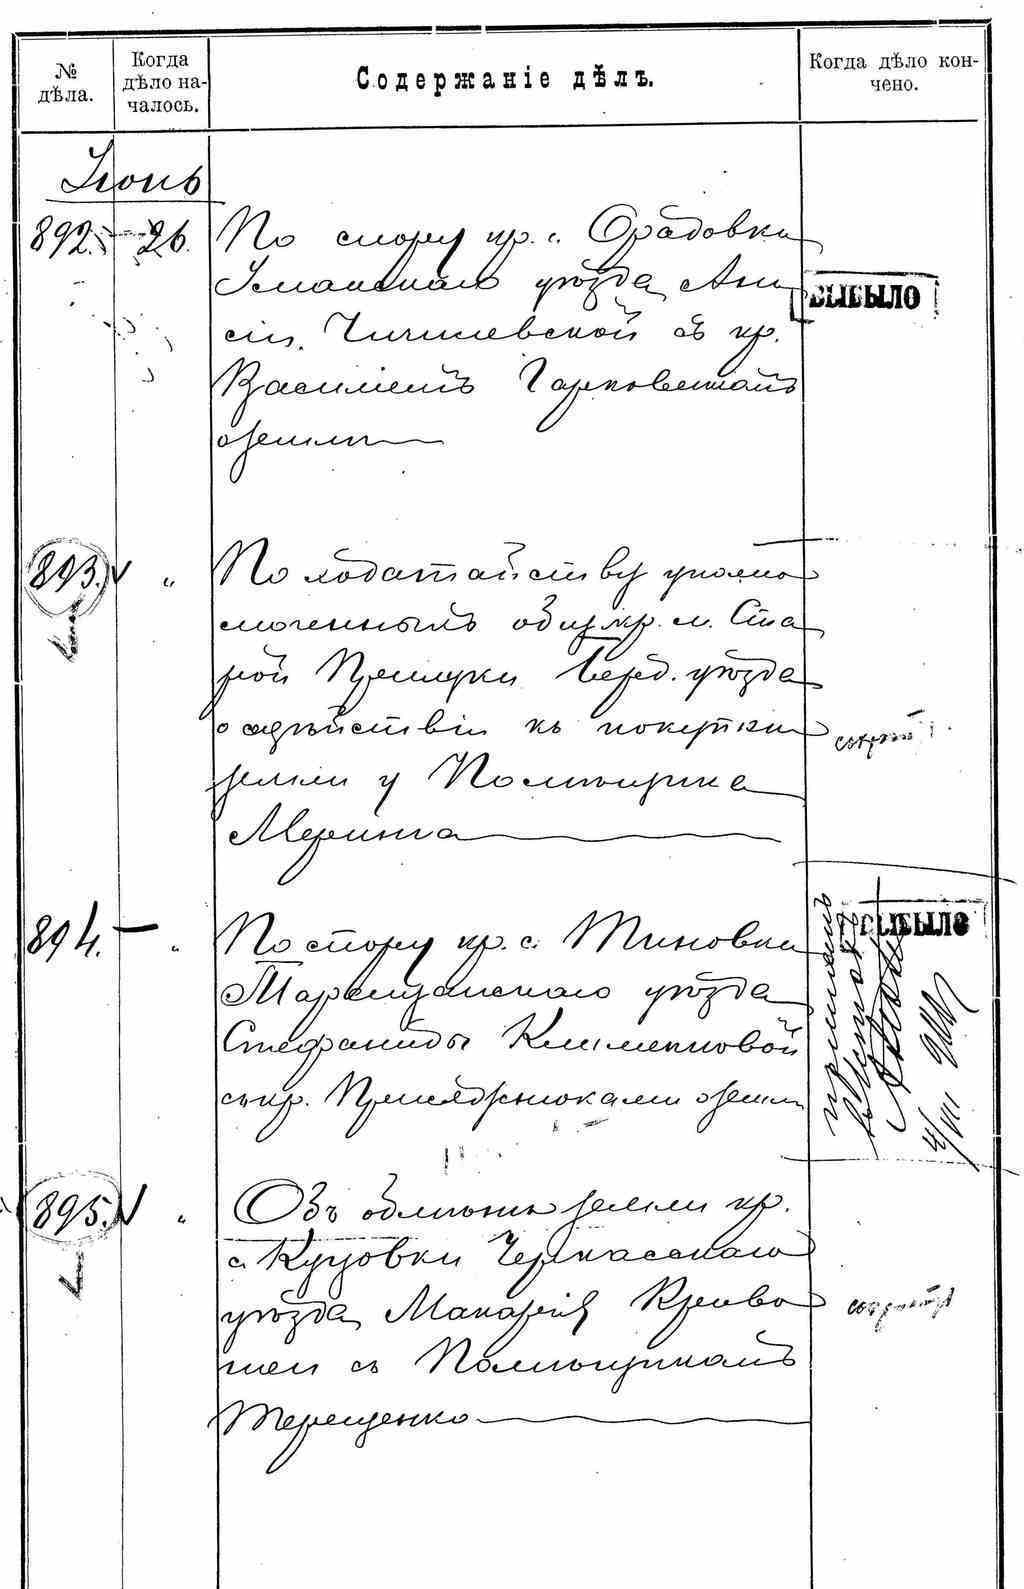 № дѣла.
Когда дѣло на-
чалось.
Содержаніе дѣлъ.
Когда дѣло кон-
чено.
Іюнь
892. 26. По спору кр. с. Орадовки
Уманскаго уѣзда Ани
сіи Чичилевской съ кр.
Василіемъ Гарковенкомъ
о земли
ВЫБЫЛО
893. " По ходатайству уполно
моченныхъ общ. кр. м. Ста
рой Прилуки Берд. уѣзда
о содѣйствіи къ покупки
земли у Помѣщика
Меринга
894. " По спору кр. с. Тиновки
Таращанскаго уѣзда
Стефаниды Клименковой
съ кр. о земли
ВЫБЫЛО
4/VIII
895. " Объ обмѣнѣ земли кр.
с. Куцовки Черкасскаго
уѣзда Макарія Криво
шеи съ Помѣщикомъ
Терещенко